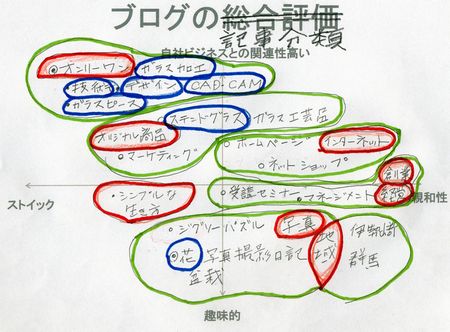 ブログの総合評価
記事分類
自社ビジネスとの関連性高い
オンリーワン ガラス加工
技術 デザイン CAD・CAM
ガラスピース
ステンドグラス ガラス工芸店
オリジナル商品
・マーケティング
・ホームページ インターネット
・ネットショップ
創業
・受講セミナー ・マネージメント 経営
ストイック
親和性
・シンプルな
生き方
・ジグソーパズル 写真 地域 伊勢崎
花 写真撮影日記 群馬
盆栽
趣味的